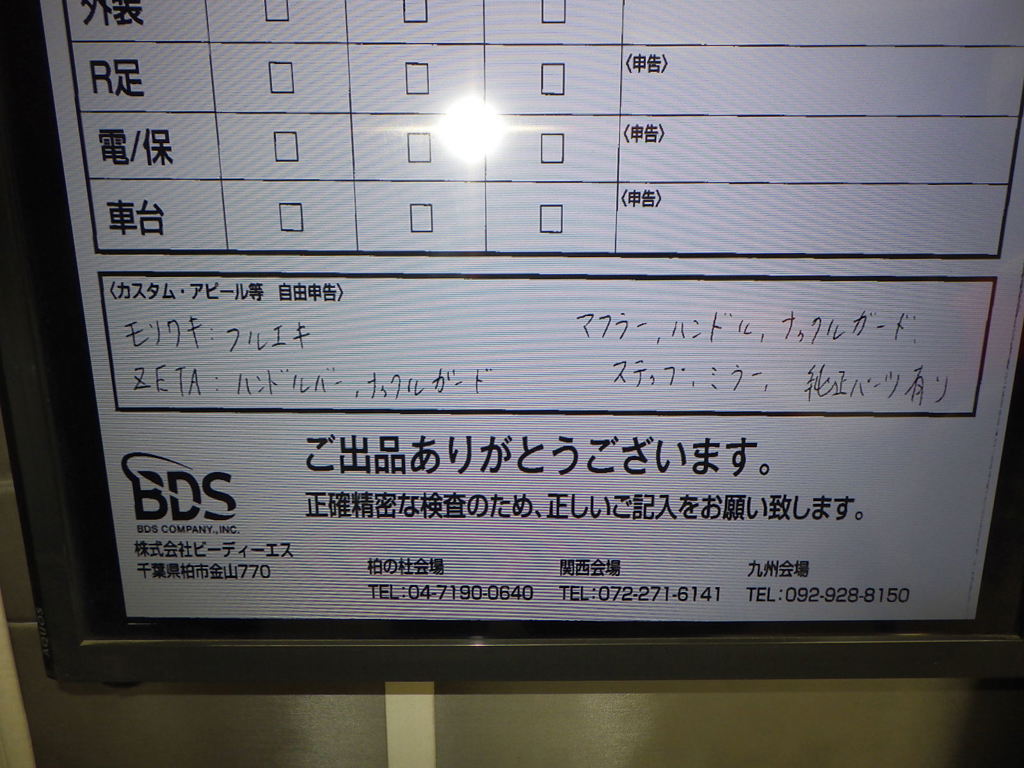 外装 □ □ □
R足 □ □ □ 〈申告〉
電/保 □ □ □ 〈申告〉
車台 □ □ □ 〈申告〉
〈カスタム・アピール等 自由申告〉
モリワキ:フルエキ
ZETA:ハンドルバー,ナックルガード
マフラー,ハンドル,ナックルガード,
ステップ,ミラー, 純正パーツ有り
ご出品ありがとうございます。
正確精密な検査のため、正しいご記入をお願い致します。
BDS
BDS COMPANY.,INC.
株式会社ビーディーエス
千葉県柏市金山770
柏の杜会場
TEL:04-7190-0640
関西会場
TEL:072-271-6141
九州会場
TEL:092-928-8150